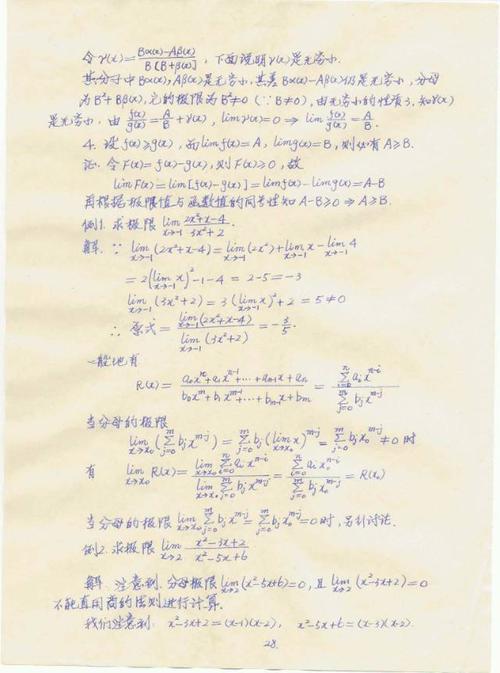 令γ(x)=\frac{Bα(x)-Aβ(x)}{B[B+β(x)]}, 下面说明γ(x)是无穷小.
其分子中Bα(x), Aβ(x)是无穷小, 其差Bα(x)-Aβ(x)仍是无穷小, 分母
为B²+Bβ(x), 它的极限为B²≠0 (∵B≠0), 由无穷小的性质3, 知γ(x)
是无穷小. 由 \frac{f(x)}{g(x)}=\frac{A}{B}+γ(x), limγ(x)=0 ⇒ lim\frac{f(x)}{g(x)}=\frac{A}{B}.
4. 设f(x)≥g(x), 而lim f(x)=A, lim g(x)=B, 则必有A≥B.
证. 令F(x)=f(x)-g(x), 则F(x)≥0, 故
lim F(x)=lim[f(x)-g(x)]=lim f(x)-lim g(x)=A-B
再根据极限值与函数值的同号性知A-B≥0 ⇒ A≥B.
例1. 求极限 \lim_{x→-1}\frac{2x²+x-4}{3x²+2}.
解. ∵ \lim_{x→-1}(2x²+x-4)=\lim_{x→-1}(2x²)+\lim_{x→-1}x-\lim_{x→-1}4
=2(\lim_{x→-1}x)²-1-4=2-5=-3
\lim_{x→-1}(3x²+2)=3(\lim_{x→-1}x)²+2=5≠0
∴ 原式=\frac{\lim_{x→-1}(2x²+x-4)}{\lim_{x→-1}(3x²+2)}=-\frac{3}{5}.
一般地有
R(x)=\frac{a_0x^n+a_1x^{n-1}+⋯+a_{n-1}x+a_n}{b_0x^m+b_1x^{m-1}+⋯+b_{m-1}x+b_m}=\frac{\sum_{i=0}^{n}a_ix^{n-i}}{\sum_{j=0}^{m}b_jx^{m-j}}
当分母的极限
\lim_{x→x_0}(\sum_{j=0}^{m}b_jx^{m-j})=\sum_{j=0}^{m}b_j(\lim_{x→x_0}x)^{m-j}=\sum_{j=0}^{m}b_jx_0^{m-j}≠0时
有 \lim_{x→x_0}R(x)=\frac{\lim_{x→x_0}\sum_{i=0}^{n}a_ix^{n-i}}{\lim_{x→x_0}\sum_{j=0}^{m}b_jx^{m-j}}=\frac{\sum_{i=0}^{n}a_ix_0^{n-i}}{\sum_{j=0}^{m}b_jx_0^{m-j}}=R(x_0)
当分母的极限\lim_{x→x_0}\sum_{j=0}^{m}b_jx^{m-j}=\sum_{j=0}^{m}b_jx_0^{m-j}=0时, 另外讨论.
例2. 求极限 \lim_{x→2}\frac{x²-3x+2}{x²-5x+6}
解. 注意到. 分母极限\lim_{x→2}(x²-5x+6)=0, 且\lim_{x→2}(x²-3x+2)=0
不能直用商的法则进行计算.
我们注意到: x²-3x+2=(x-1)(x-2), x²-5x+6=(x-3)(x-2).
28.